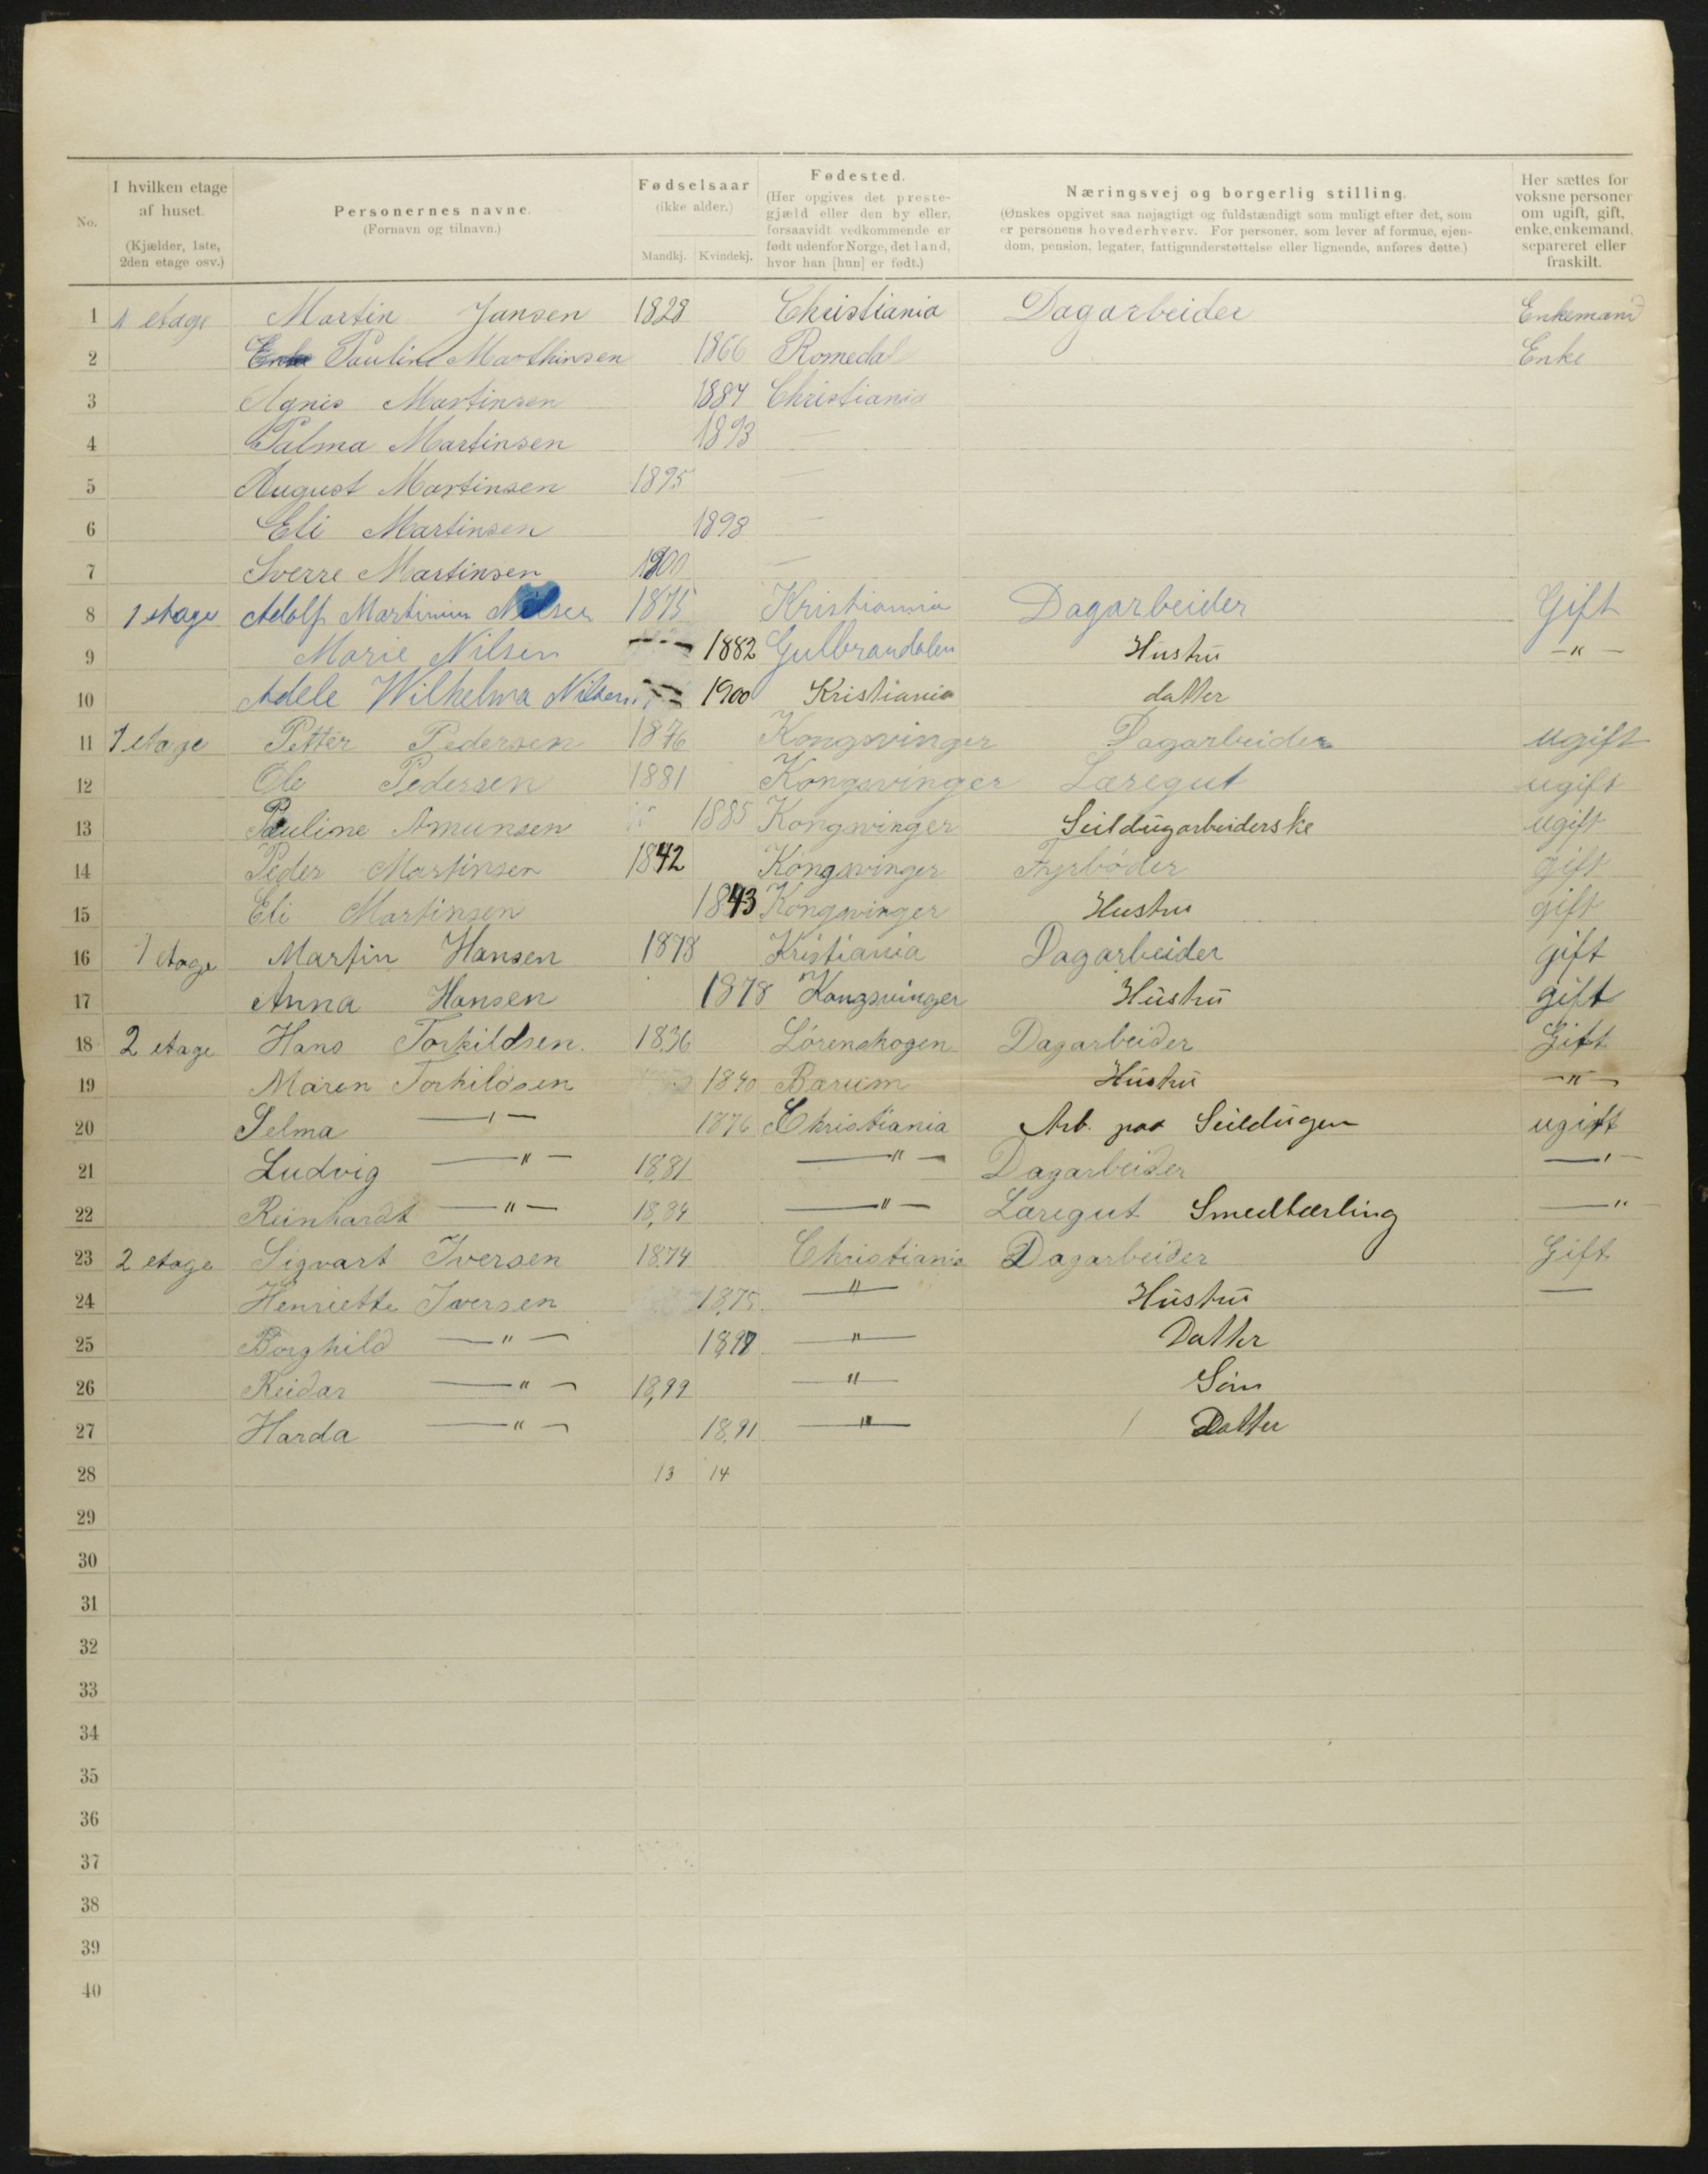 No.
I hvilken etage af huset. (Kjælder, 1ste, 2den etage osv.)
Personernes navne. (Fornavn og tilnavn.)
Fødselsaar (ikke alder.) Mandkj. Kvindekj.
Fødested. (Her opgives det prestegjæld eller den by eller, forsaavidt vedkommende er født udenfor Norge, det land, hvor han [hun] er født.)
Næringsvej og borgerlig stilling. (Ønskes opgivet saa nøjagtigt og fuldstændigt som muligt efter det, som er personens hovederhverv. For personer, som lever af formue, ejendom, pension, legater, fattigunderstøttelse eller lignende, anføres dette.)
Her sættes for voksne personer om ugift, gift, enke, enkemand, separeret eller fraskilt.
1 1 etage Martin Jansen 1828 Christiania Dagarbeider Enkemand
2 Pauline Marthinsen 1866 Romedal Enke
3 Agnis Martinsen 1887 Christiania
4 Palma Martinsen 1893 —
5 August Martinsen 1895 —
6 Eli Martinsen 1898 —
7 Sverre Martinsen 1900 —
8 1 etage Adolf Martinius Nilsen 1875 Kristiannia Dagarbeider Gift
9 Marie Nilsen 1882 Gulbrandalen Hustru —"—
10 Adele Wilhelma Nilsen 1900 Kristiania datter
11 1 etage Petter Pedersen 1876 Kongsvinger Dagarbeider ugift
12 Ole Pedersen 1881 Kongsvinger Læregut ugift
13 Pauline Amunsen 1885 Kongsvinger Seildugarbeiderske ugift
14 Peder Martinsen 1842 Kongsvinger Fyrbøder gift
15 Eli Martinsen 1843 Kongsvinger Hustru gift
16 1 etage Martin Hansen 1878 Kristiania Dagarbeider gift
17 Anna Hansen 1878 Kongsvinger Hustru gift
18 2 etage Hans Torkildsen 1836 Lørenskogen Dagarbeider Gift
19 Maren Torkildsen 1840 Barum Hustru —"—
20 Selma —"— 1876 Christiania Arb. paa Seildugen ugift
21 Ludvig —"— 1881 —"— Dagarbeider —"—
22 Reinhardt —"— 1884 —"— Læregut Smedlærling —"
23 2 etage Sigvart Iversen 1874 Christiania Dagarbeider Gift
24 Henriette Iversen 1875 —"— Hustru —
25 Borghild —"— 1898 —"— Datter
26 Reidar —"— 1899 —"— Søn
27 Harda —"— 1891 —"— Datter
28 13 14
29
30
31
32
33
34
35
36
37
38
39
40